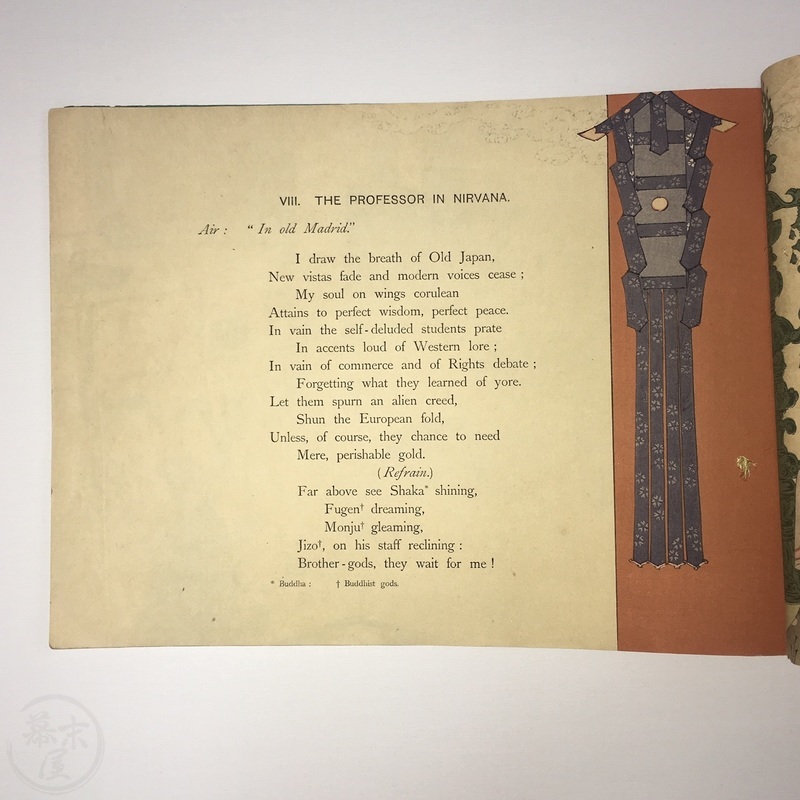 VIII. THE PROFESSOR IN NIRVANA.
Air : "In old Madrid."
I draw the breath of Old Japan,
New vistas fade and modern voices cease ;
My soul on wings corulean
Attains to perfect wisdom, perfect peace.
In vain the self-deluded students prate
In accents loud of Western lore ;
In vain of commerce and of Rights debate ;
Forgetting what they learned of yore.
Let them spurn an alien creed,
Shun the European fold,
Unless, of course, they chance to need
Mere, perishable gold.
(Refrain.)
Far above see Shaka* shining,
Fugen† dreaming,
Monju† gleaming,
Jizo†, on his staff reclining :
Brother-gods, they wait for me !
* Buddha : † Buddhist gods.
幕末屋